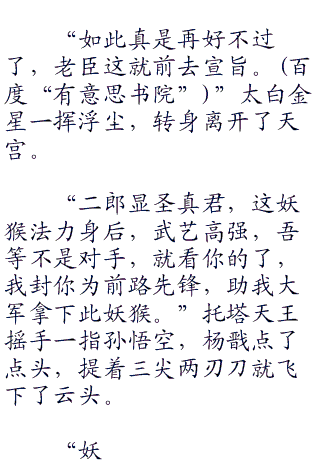 “如此真是再好不过
了，老臣这就前去宣旨。(百
度“有意思书院”)”太白金
星一挥浮尘，转身离开了天
宫。
“二郎显圣真君，这妖
猴法力身后，武艺高强，吾
等不是对手，就看你的了，
我封你为前路先锋，助我大
军拿下此妖猴。”托塔天王
摇手一指孙悟空，杨戬点了
点头，提着三尖两刃刀就飞
下了云头。
“妖